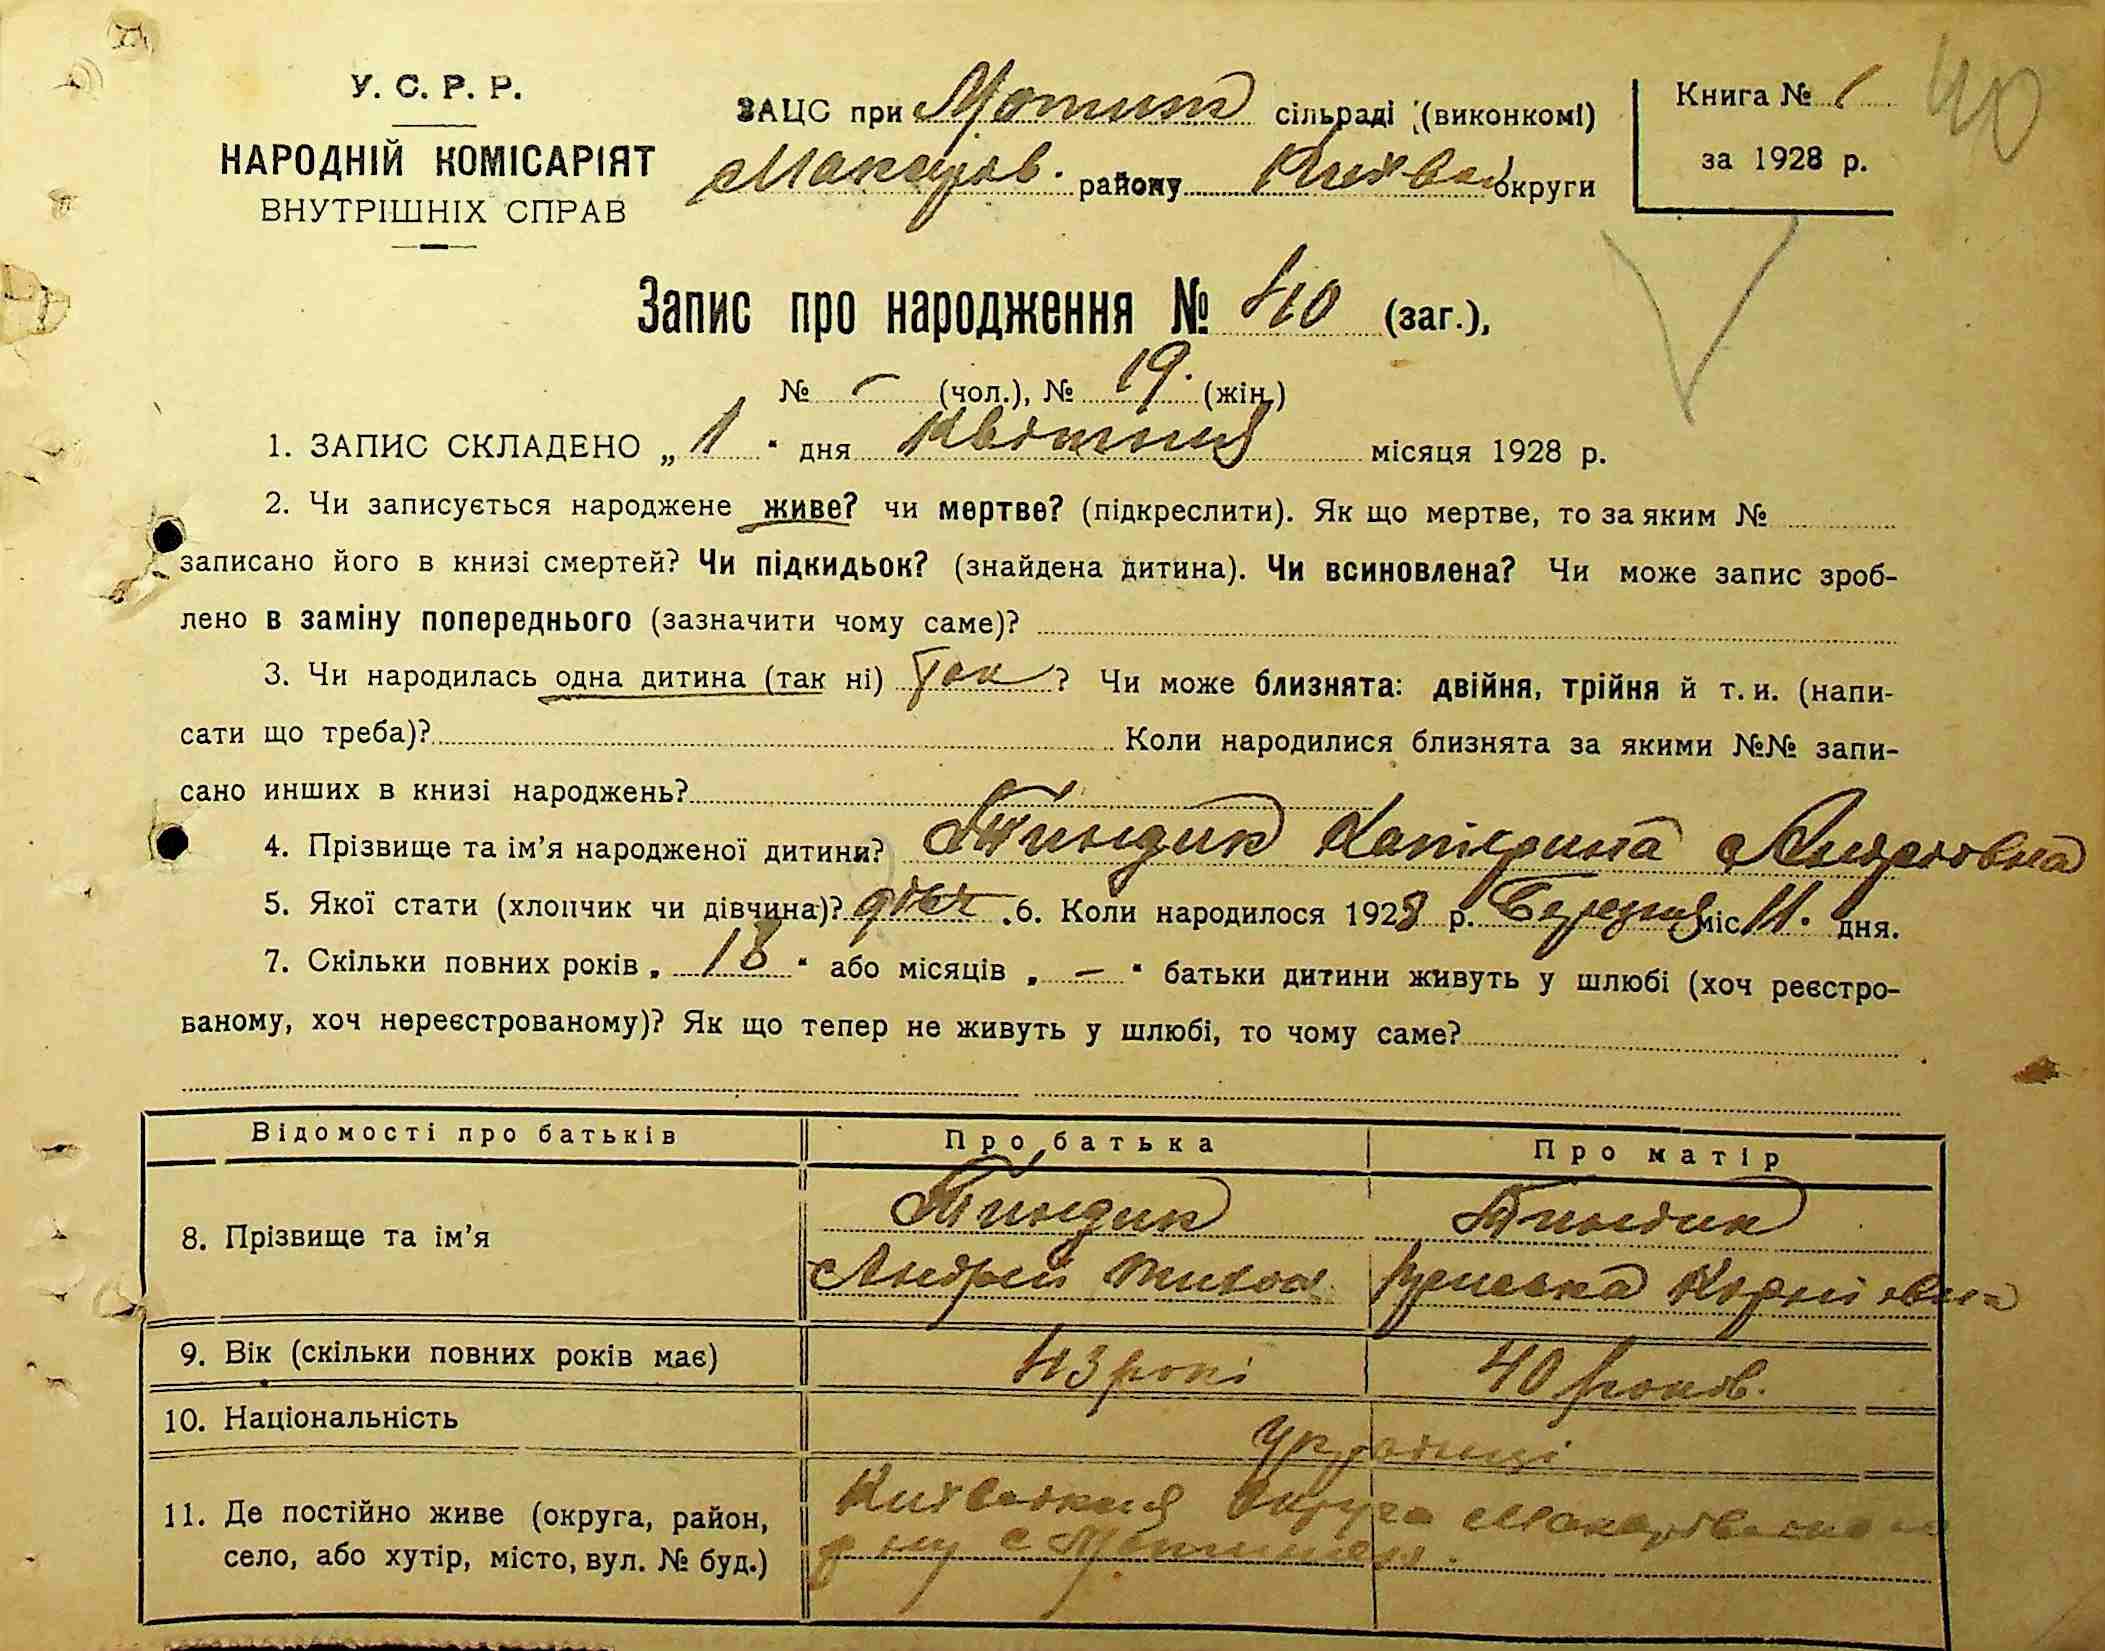 У. С. Р. Р.
НАРОДНІЙ КОМІСАРІЯТ
ВНУТРІШНІХ СПРАВ
ЗАЦС при Мотиж сільраді (виконкомі)
Макарів. району Київськ округи
Книга № 1
за 1928 р.
40
Запис про народження № 40 (заг.),
№ — (чол.), № 19. (жін.)
1. ЗАПИС СКЛАДЕНО „ 1 " дня Квітня місяця 1928 р.
2. Чи записується народжене живе? чи мертве? (підкреслити). Як що мертве, то за яким №
записано його в книзі смертей? Чи підкидьок? (знайдена дитина). Чи всиновлена? Чи може запис зроб-
лено в заміну попереднього (зазначити чому саме)?
3. Чи народилась одна дитина (так ні) Так ? Чи може близнята: двійня, трійня й т. и. (напи-
сати що треба)? Коли народилися близнята за якими №№ запи-
сано инших в книзі народжень?
4. Прізвище та ім'я народженої дитини? Тиндик Катерина Андріовна
5. Якої стати (хлопчик чи дівчина)? дівч. 6. Коли народилося 1928 р. Березня міс 11. дня.
7. Скільки повних років „ 18 " або місяців „ — " батьки дитини живуть у шлюбі (хоч реєстро-
ваному, хоч нереєстрованому)? Як що тепер не живуть у шлюбі, то чому саме?
Відомості про батьків Про батька Про матір
8. Прізвище та ім'я Тиндик Тиндик
Андрей Тихон Корніовна
9. Вік (скільки повних років має) 43 рокі 40 років.
10. Національність Українці
11. Де постійно живе (округа, район, Київськая Округа Макарівського
село, або хутір, місто, вул. № буд.) р ну с